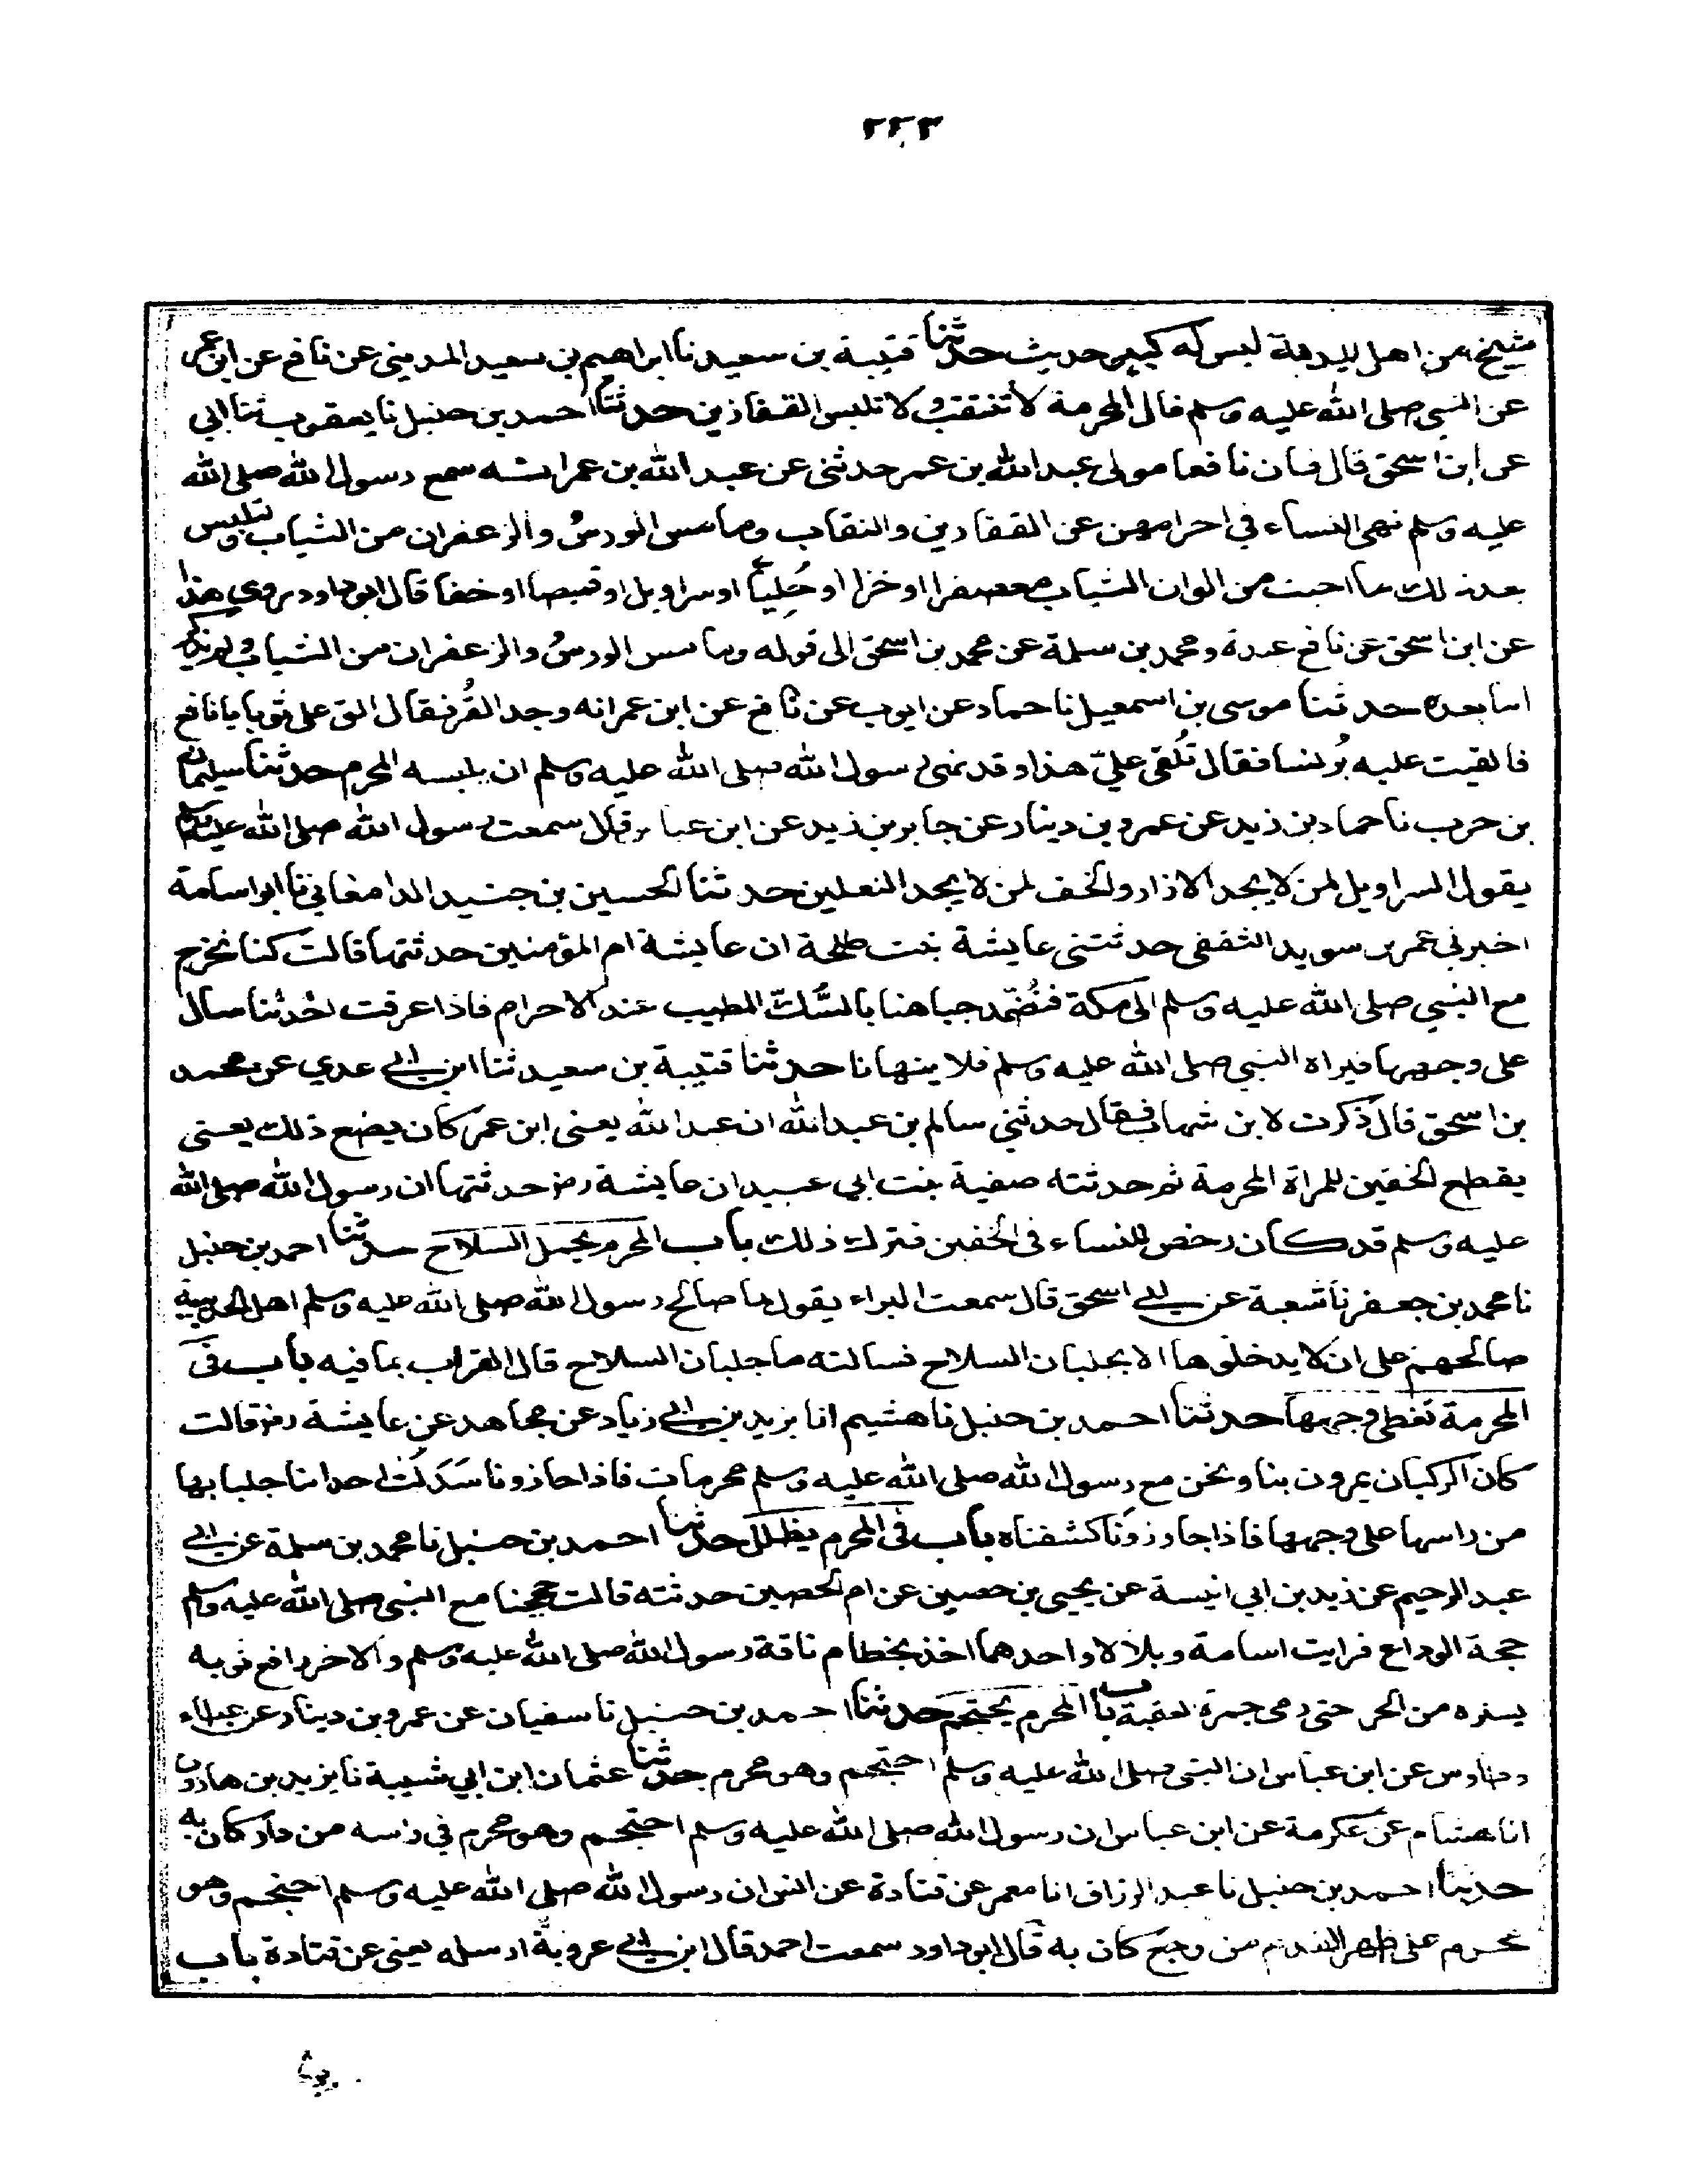 ٢٤٣
شيخ من اهل المدينة ليس له كبير حديث حدثنا قتيبة بن سعيد نا ابراهيم بن سعيد المديني عن نافع عن ابن عمر
عن النبي صلى الله عليه وسلم قال المحرمة لا تنتقب ولا تلبس القفازين حدثنا احمد بن حنبل نا يعقوب ثنا ابي
عن ابن اسحق قال فان نافعا مولى عبد الله بن عمر حدثني عن عبد الله بن عمر انه سمع رسول الله صلى الله
عليه وسلم نهى النساء في احرامهن عن القفازين والنقاب وما مس الورسُ والزعفران من الثياب ولتلبس
بعد ذلك ما احبت من الوان الثياب معصفرا او خزا او حُلِيّاً او سراويل او قميصا او خفا قال ابو داود روى هذا
عن ابن اسحق عن نافع عبدة ومحمد بن سلمة عن محمد بن اسحق الى قوله وما مس الورسُ والزعفران من الثياب ولم يذكرا
ما بعده حدثنا موسى بن اسمعيل نا حماد عن ايوب عن نافع عن ابن عمر انه وجد القُرّ فقال الق علي ثوبا يا نافع
فالقيت عليه بُرنسا فقال تُلقى عليّ هذا وقد نهى رسول الله صلى الله عليه وسلم ان يلبسه المحرم حدثنا سليمان
بن حرب نا حماد بن زيد عن عمرو بن دينار عن جابر بن زيد عن ابن عباس قال سمعت رسول الله صلى الله عليه وسلم
يقول السراويل لمن لا يجد الازار والخف لمن لا يجد النعلين حدثنا الحسين بن جنيد الدامغاني نا ابو اسامة
اخبرني عمر بن سويد الثقفي حدثتني عايشة بنت طلحة ان عايشة ام المؤمنين حدثتها قالت كنا نخرج
مع النبي صلى الله عليه وسلم الى مكة فنُضَمِّد جباهنا بالسُّكّ المطيب عند الاحرام فاذا عرقت احدنا سال
على وجهها فيراه النبي صلى الله عليه وسلم فلا ينهانا حدثنا قتيبة بن سعيد ثنا ابن ابي عدي عن محمد
بن اسحق قال ذكرت لابن شهاب فقال حدثني سالم بن عبد الله ان عبد الله يعنى ابن عمر كان يصنع ذلك يعنى
يقطع الخفين للمراة المحرمة ثم حدثته صفية بنت ابي عبيد ان عايشة رض حدثتها ان رسول الله صلى الله
عليه وسلم قد كان رخص للنساء في الخفين فترك ذلك باب المحرم يحمل السلاح حدثنا احمد بن حنبل
نا محمد بن جعفر نا شعبة عن ابي اسحق قال سمعت البراء يقول لما صالح رسول الله صلى الله عليه وسلم اهل الحديبية
صالحهم على ان لا يدخلوها الا بجلبان السلاح فسالته ما جلبان السلاح قال القراب بما فيه باب في
المحرمة تغطى وجهها حدثنا احمد بن حنبل نا هشيم انا يزيد بن ابي زياد عن مجاهد عن عايشة رض قالت
كان الركبان يمرون بنا ونحن مع رسول الله صلى الله عليه وسلم محرمات فاذا حاذونا سَدَلَت احدانا جلبابها
من راسها على وجهها فاذا جاوزونا كشفناه باب في المحرم يظلل حدثنا احمد بن حنبل نا محمد بن سلمة عن ابي
عبد الرحيم عن زيد بن ابي انيسة عن يحيى بن حصين عن ام الحصين حدثته قالت حججنا مع النبي صلى الله عليه وسلم
حجة الوداع فرايت اسامة وبلالا واحدهما اخذ بخطام ناقة رسول الله صلى الله عليه وسلم والاخر رافع ثوبه
يستره من الحر حتى رمى جمرة العقبة باب المحرم يحتجم حدثنا احمد بن حنبل نا سفيان عن عمرو بن دينار عن عطاء
وطاوس عن ابن عباس ان النبي صلى الله عليه وسلم احتجم وهو محرم حدثنا عثمان ابن ابي شيبة نا يزيد بن هارون
انا هشام عن عكرمة عن ابن عباس ان رسول الله صلى الله عليه وسلم احتجم وهو محرم في راسه من داء كان به
حدثنا احمد بن حنبل نا عبد الرزاق انا معمر عن قتادة عن انس ان رسول الله صلى الله عليه وسلم احتجم وهو
محرم على ظهر القدم من وجع كان به قال ابو داود سمعت احمد قال ابن ابي عروبة ارسله يعني عن قتادة باب